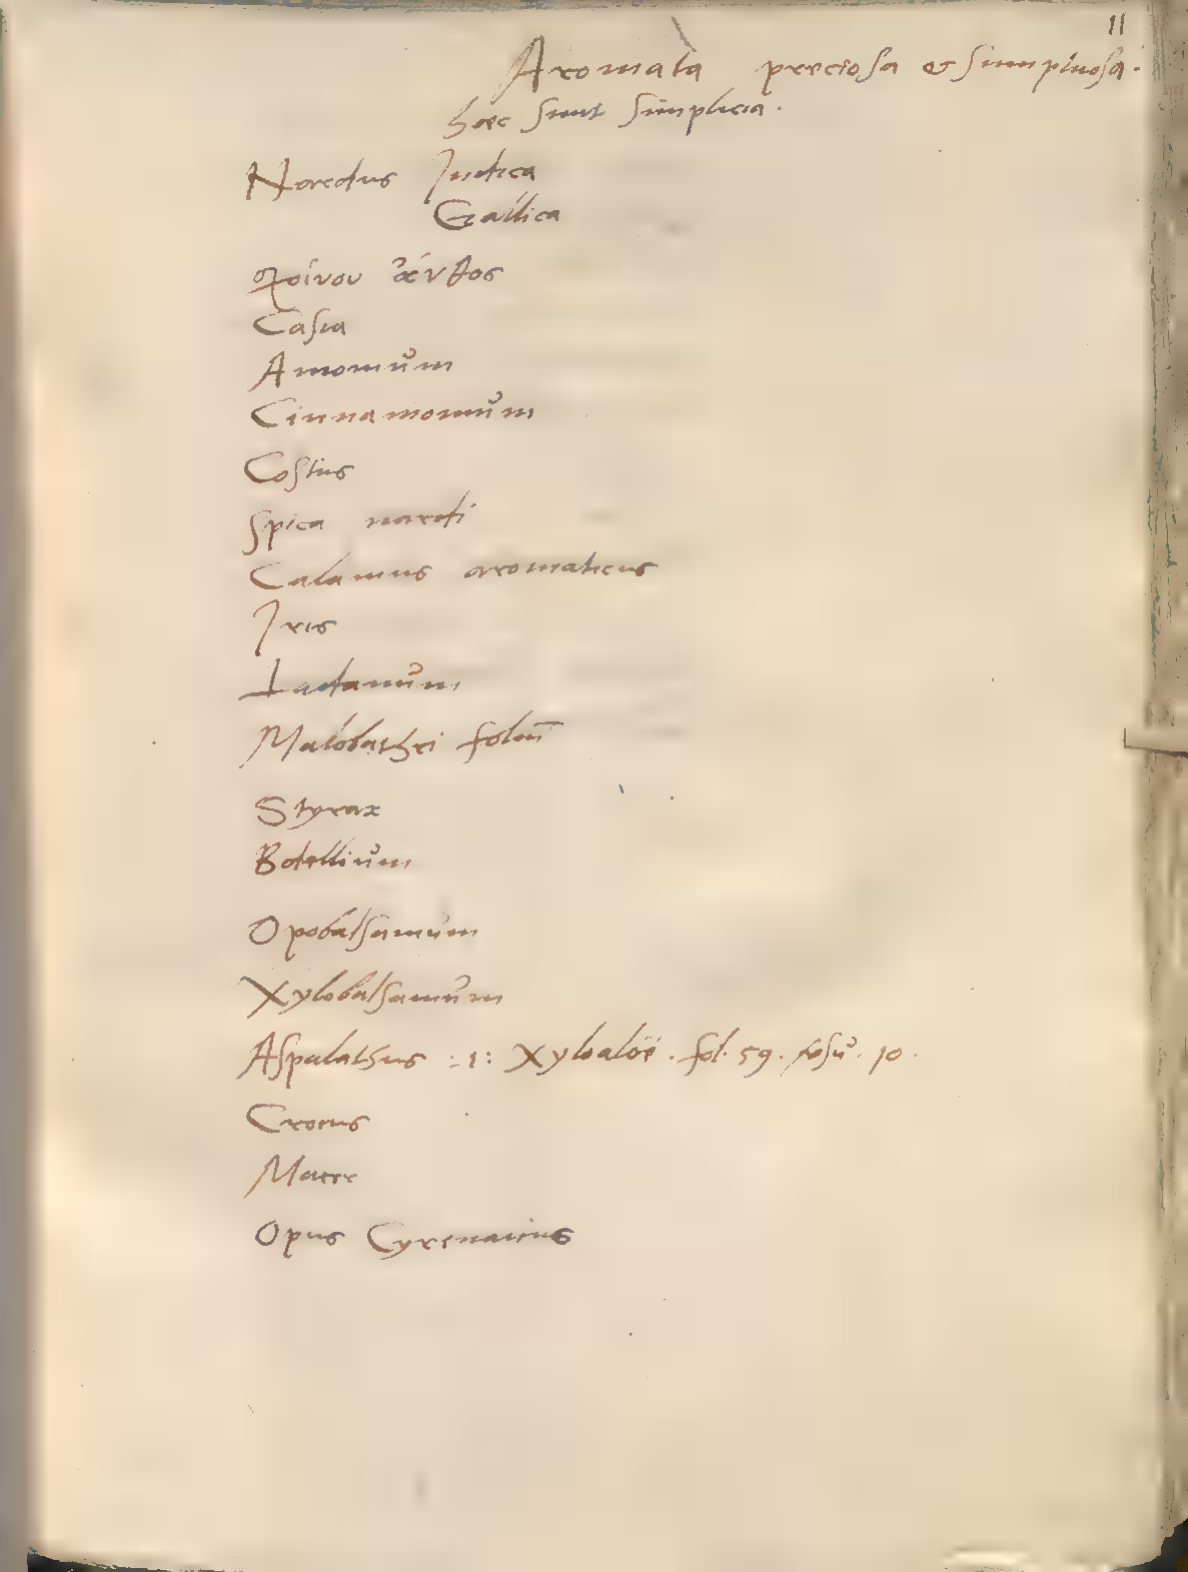 11
Aromata preciosa & sumptuosa.
haec sunt simplicia.
Nardus Indica
Gallica
σχοίνου ἄνθος
Casia
Amomŭm
Cinnamomŭm
Costus
Spica nardi
Calamus aromaticus
Iris
Ladanŭm
Malobathri foliū
Styrax
Bdelliŭm
Opobalsamŭm
Xylobalsamŭm
Aspalathus :1: Xyloaloë . fol. 59. 10.
Crocus
Macer
Opus Cyrenaicus